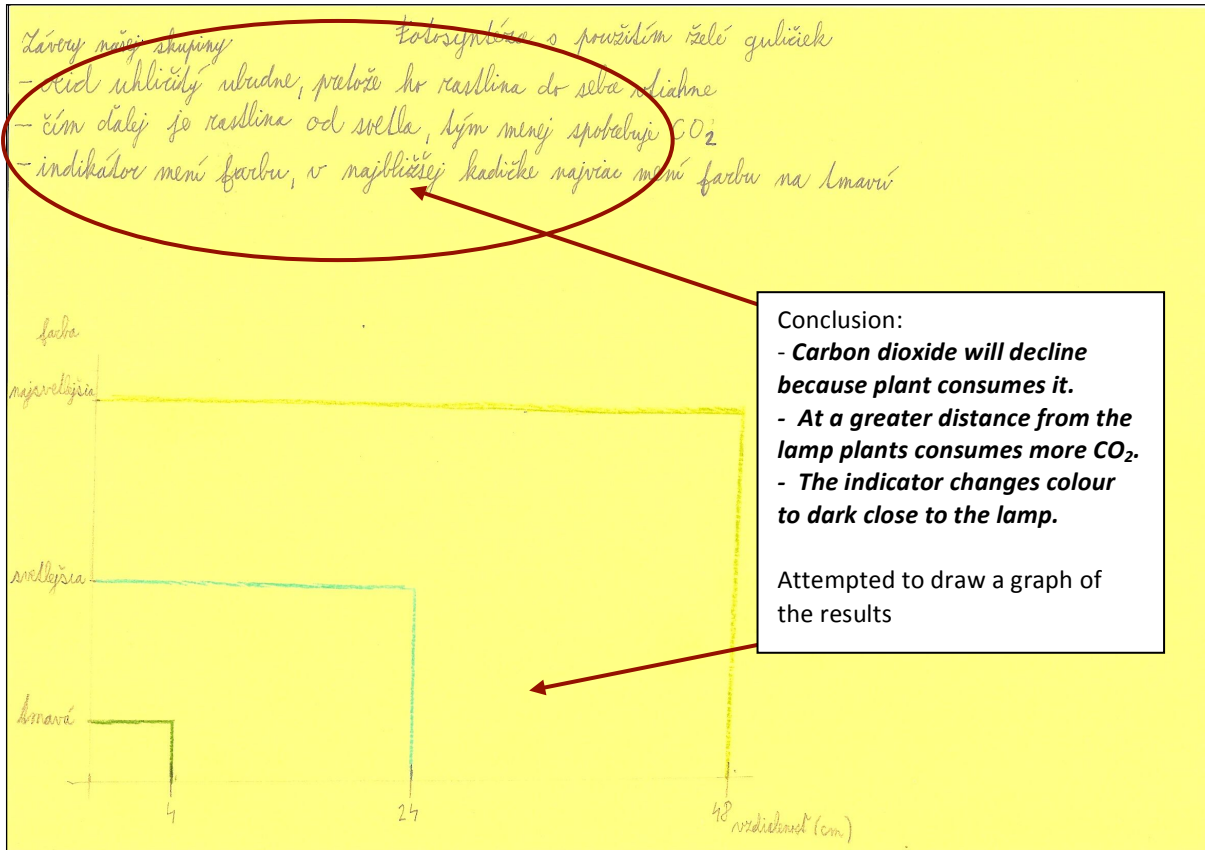 Závery našej skupiny
Fotosyntéza s použitím želé guličiek
- oxid uhličitý ubudne, pretože ho rastlina do seba vtiahne
- čím ďalej je rastlina od svetla, tým menej spotrebuje CO₂
- indikátor mení farbu, v najbližšej kadičke najviac mení farbu na tmavú
Conclusion:
- Carbon dioxide will decline
because plant consumes it.
- At a greater distance from the
lamp plants consumes more CO₂.
- The indicator changes colour
to dark close to the lamp.
Attempted to draw a graph of
the results
farba
najsvetlejšia
svetlejšia
tmavá
4
24
48
vzdialenosť (cm)